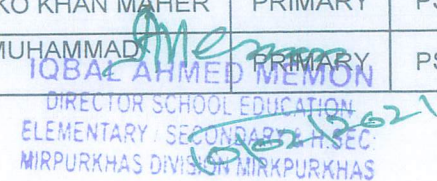 KO KHAN MAHER PRIMARY PS
MUHAMMAD PRIMARY PS
IQBAL AHMED MEMON
DIRECTOR SCHOOL EDUCATION
ELEMENTARY SECONDARY & H.SEC:
MIRPURKHAS DIVISION MIRKPURKHAS
10/02/2021